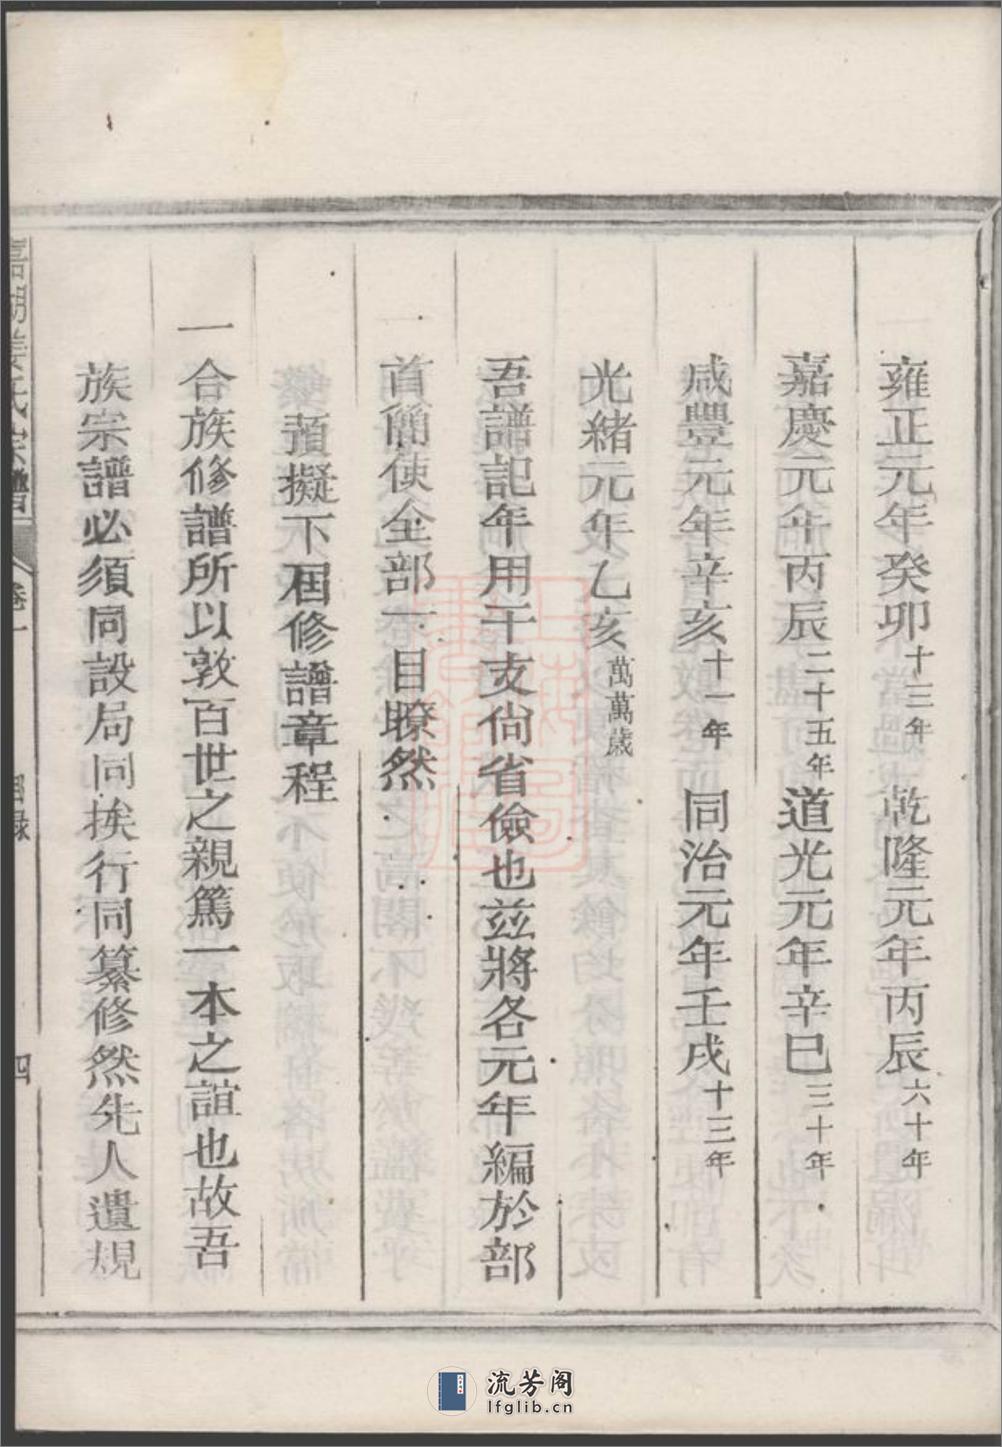 雍正元年癸卯十三年　乾隆元年丙辰六十年
嘉慶元年丙辰二十五年道光元年辛巳三十年
咸豐元年辛亥十一年　同治元年壬戌十三年
光緒元年乙亥萬萬歲
吾譜記年用干支尙省儉也茲將各元年編於部
首簡使全部一目瞭然
預擬下屆修譜章程
一合族修譜所以敦百世之親篤一本之誼也故吾
族宗譜必須同設局同挨行同纂修然先人遺規
姜氏宗譜
卷一
目錄
四
流芳阁
lfglib.cn